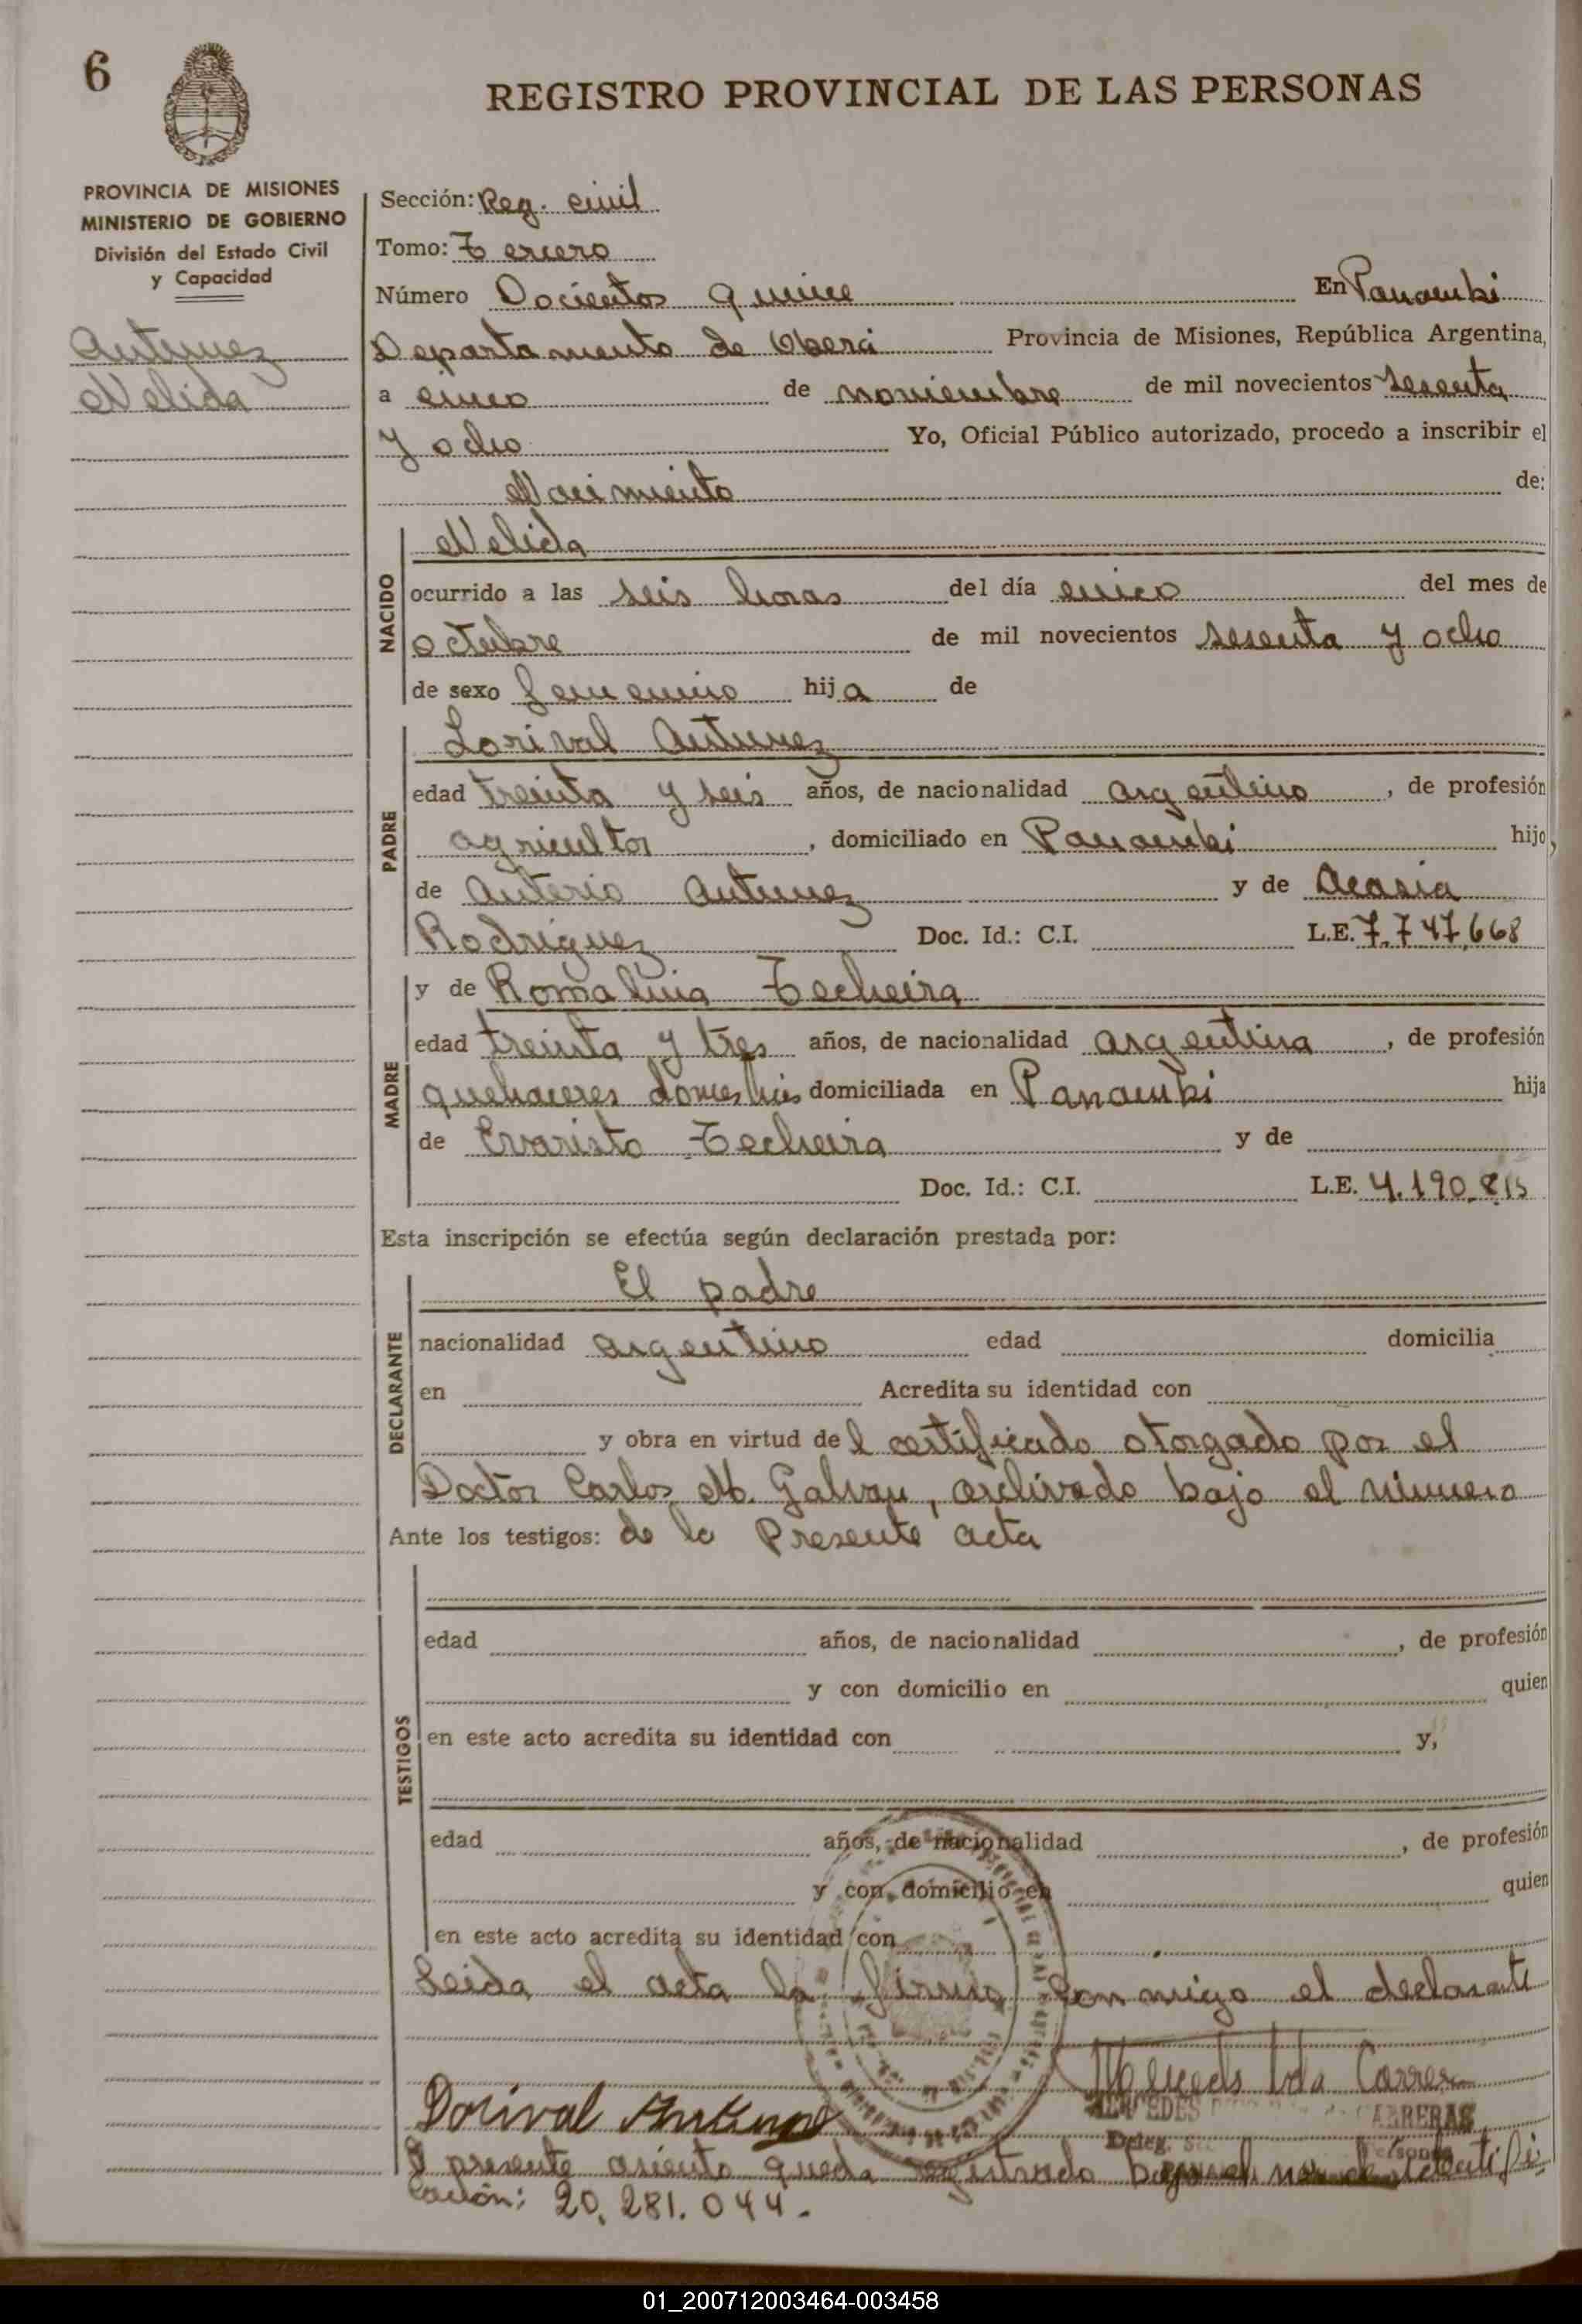 6
REGISTRO PROVINCIAL DE LAS PERSONAS
PROVINCIA DE MISIONES
MINISTERIO DE GOBIERNO
División del Estado Civil
y Capacidad
Antunez
Nelida
Sección: Reg. civil
Tomo: Tercero
Número Docientos quince En Panambi
Departamento de Oberá Provincia de Misiones, República Argentina,
a cinco de noviembre de mil novecientos sesenta
y ocho Yo, Oficial Público autorizado, procedo a inscribir el
Nacimiento de:
NACIDO
Nelida
ocurrido a las seis horas del día cinco del mes de
octubre de mil novecientos sesenta y ocho
de sexo femenino hija de
PADRE
Lorival Antunez
edad treinta y seis años, de nacionalidad argentino, de profesión
agricultor, domiciliado en Panambi hijo,
de Anterio Antunez y de Acasia
Rodriguez Doc. Id.: C.I. L.E. 7.747,668
MADRE
y de Romalina Techeira
edad treinta y tres años, de nacionalidad argentina, de profesión
quehaceres domesticos domiciliada en Panambi hija
de Evaristo Techeira y de
Doc. Id.: C.I. L.E. 4.190.815
Esta inscripción se efectúa según declaración prestada por:
DECLARANTE
El padre
nacionalidad argentino edad domicilia
en Acredita su identidad con
y obra en virtud del certificado otorgado por el
Doctor Carlos M. Galvan, archivado bajo el número
Ante los testigos: de la Presente acta
TESTIGOS
edad años, de nacionalidad , de profesión
y con domicilio en quien
en este acto acredita su identidad con y,
edad años, de nacionalidad , de profesión
y con domicilio en quien
en este acto acredita su identidad con
Leida el acta la firma conmigo el declarante
Dorival Antunez
CARRERAS
Deleg.
El presente asiento queda registrado bajo el
cación: 20.281.044.-
01_200712003464-003458